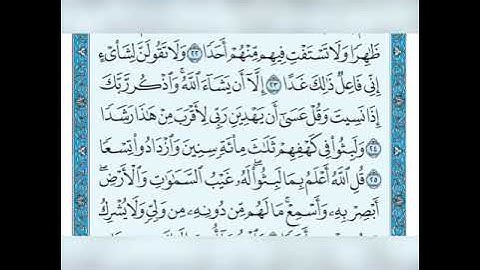 ظَٰهِرًا وَلَا تَسْتَفْتِ فِيهِم مِّنْهُمْ أَحَدًا ٢٢ وَلَا تَقُولَنَّ لِشَا۟ىْءٍ
إِنِّى فَاعِلٌ ذَٰلِكَ غَدًا ٢٣ إِلَّآ أَن يَشَآءَ ٱللَّهُ وَٱذْكُر رَّبَّكَ
إِذَا نَسِيتَ وَقُلْ عَسَىٰٓ أَن يَهْدِيَنِ رَبِّى لِأَقْرَبَ مِنْ هَٰذَا رَشَدًا
٢٤ وَلَبِثُوا۟ فِى كَهْفِهِمْ ثَلَٰثَ مِا۟ئَةٍ سِنِينَ وَٱزْدَادُوا۟ تِسْعًا
٢٥ قُلِ ٱللَّهُ أَعْلَمُ بِمَا لَبِثُوا۟ لَهُۥ غَيْبُ ٱلسَّمَٰوَٰتِ وَٱلْأَرْضِ
أَبْصِرْ بِهِۦ وَأَسْمِعْ مَا لَهُم مِّن دُونِهِۦ مِن وَلِىٍّ وَلَا يُشْرِكُ